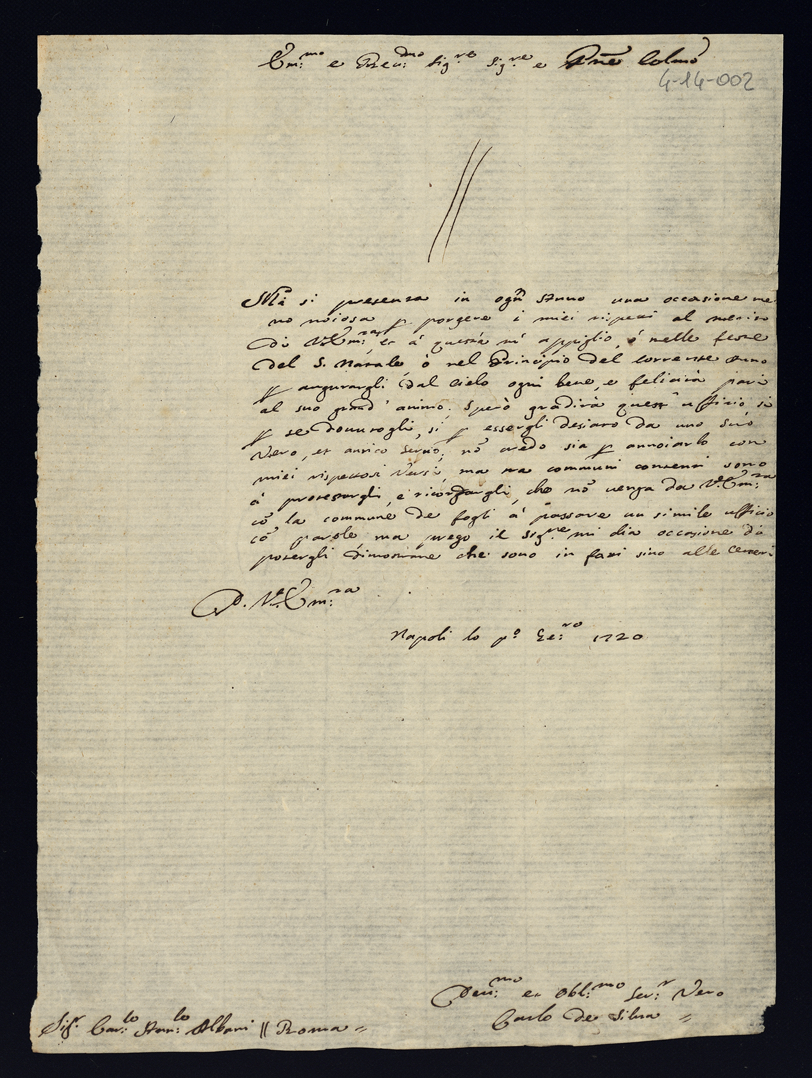 Em:mo e Reu:dmo Sig:re Sig:re e Pne Colmo
4-14-002
Mi si presenta in ogn Anno una occasione me
no noiosa p porgere i miei rispetti al merito
di V. Em:ra, et a questa m' appiglio, è nelle feste
del S. Natale, ò nel Principio del corrente Anno
p augurargli dal Cielo ogni bene, e felicità pari
al suo grand' animo. Sperò gradirà quest' uffizio si
p se douurogli, si p essergli desiato da uno Seruo
Vero, et antico Seruo, nò credo sia p annoiarlo con
miei rispettosi Versi, ma tra communi contenti sono
à protestargli, e ricordargli, che nò uenga da V. Em:ra
cò la commune de fogli à passare un simile ufficio
cò parole ma prego il Sig:re mi dia occasione di
potergli dimostrare che sono in fatti sino alle Ceneri
D. V. Em:ra
Napoli lo po Ge:ro 1720
Deu:mo et Obl:mo Ser:r Vero
Carlo de Silua
Sig:r Car:lo Albani // Roma